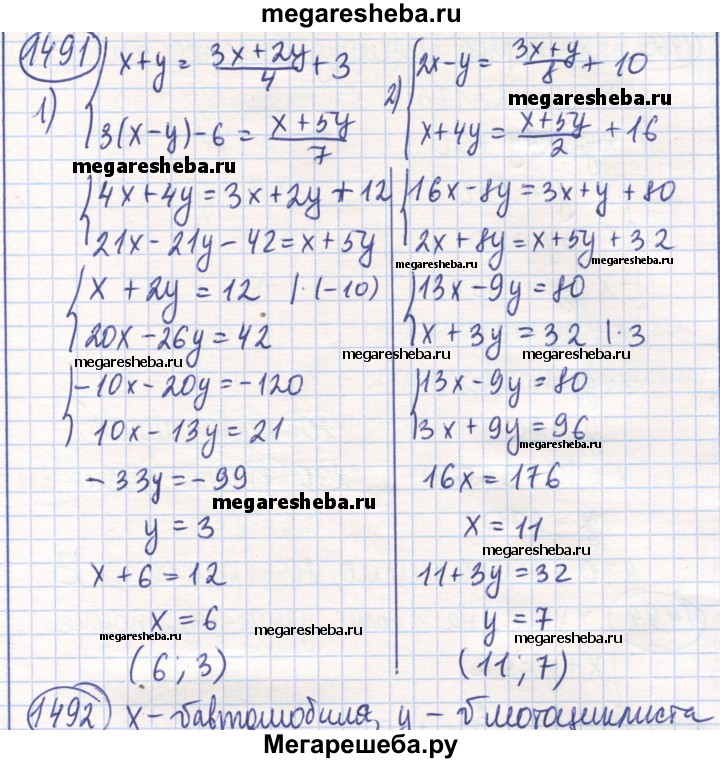 megaresheba.ru
1491
1)
x+y = (3x+2y)/4 + 3
3(x-y)-6 = (x+5y)/7
megaresheba.ru
4x+4y = 3x+2y+12
21x-21y-42=x+5y
x+2y=12 |·(-10)
20x-26y=42
megaresheba.ru
-10x-20y=-120
10x-13y=21
-33y=-99
megaresheba.ru
y=3
x+6=12
x=6
megaresheba.ru
(6; 3)
2)
2x-y = (3x+y)/8 + 10
megaresheba.ru
x+4y = (x+5y)/2 + 16
16x-8y=3x+y+80
2x+8y=x+5y+32
megaresheba.ru megaresheba.ru
13x-9y=80
x+3y=32 |·3
megaresheba.ru megaresheba.ru
13x-9y=80
3x+9y=96
megaresheba.ru
16x=176
x=11
megaresheba.ru
11+3y=32
y=7
megaresheba.ru megaresheba.ru
(11; 7)
1492 x - v автомобиля, y - v мотоциклиста
Мегарешеба.ру